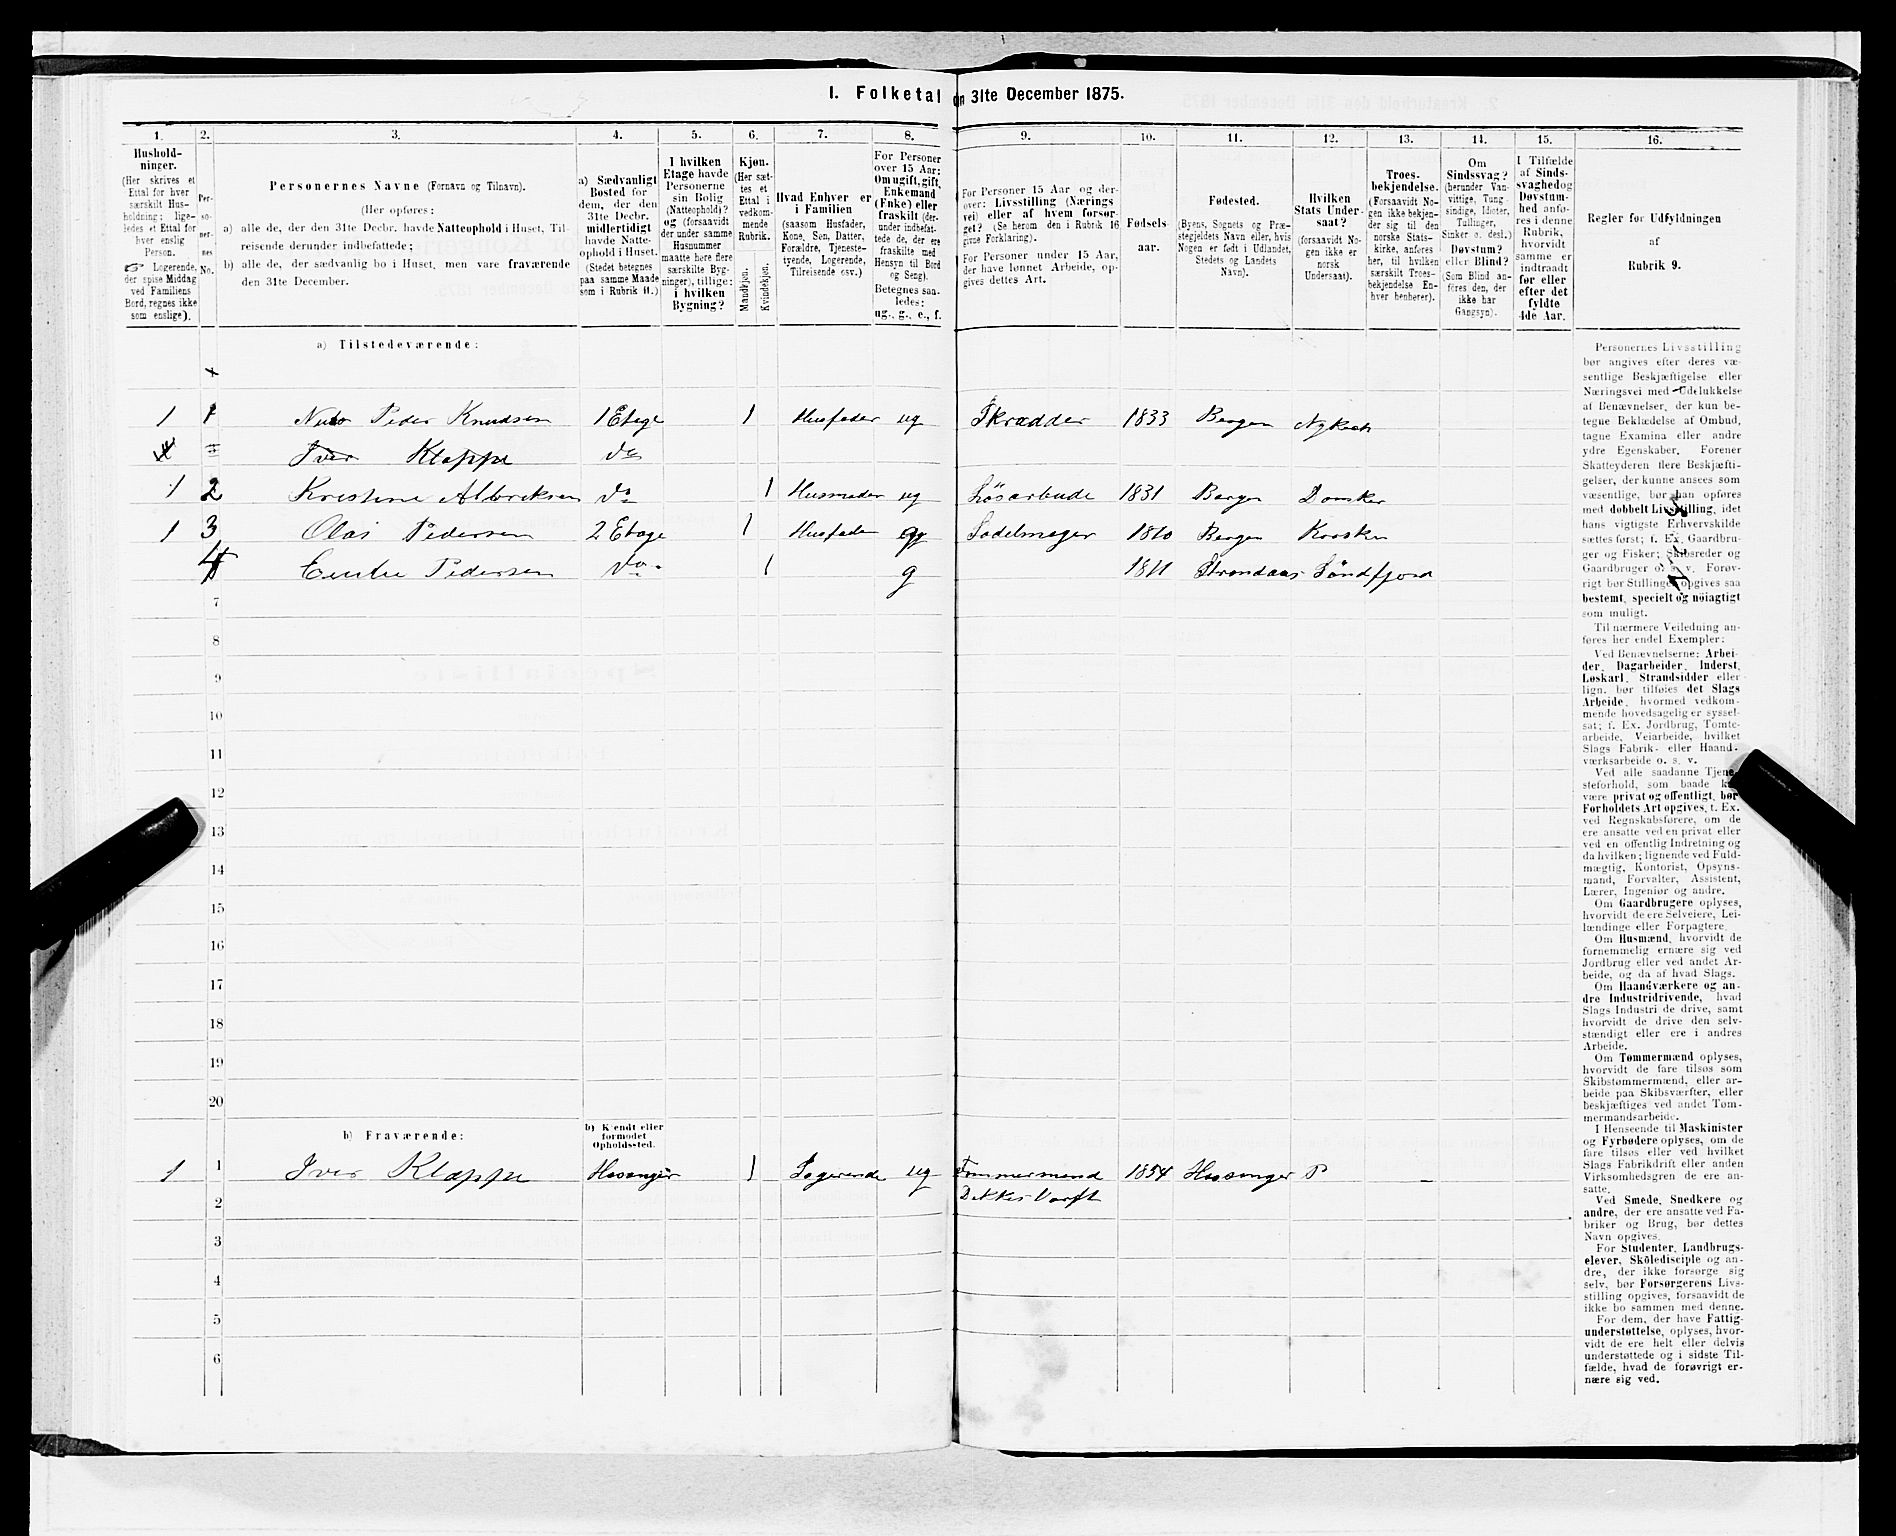 1. Folketal den 31te December 1875.
1. 2. 3. 4. 5. 6. 7. 8. 9. 10. 11. 12. 13. 14. 15. 16.
Hushold-
ninger.
(Her skrives et
Ettal for hver
særskilt Hus-
holdning; lige-
ledes et Ettal for
hver enslig
Person.
☞ Logerende,
der spise Middag
ved Familiens
Bord, regnes ikke
som enslige).
Per-
so-
ner-
nes
No.
Personernes Navne (Fornavn og Tilnavn).
(Her opføres:
a) alle de, der den 31te Decbr. havde Natteophold i Huset, Til-
reisende derunder indbefattede;
b) alle de, der sædvanlig bo i Huset, men vare fraværende
den 31te December.
a) Sædvanligt
Bosted for
dem, der den
31te Decbr.
midlertidigt
havde Natte-
ophold i Huset.
(Stedet betegnes
paa samme Maade
som i Rubrik 11.)
I hvilken
Etage havde
Personerne
sin Bolig
(Natteophold)?
og (forsaavidt
der under samme
Husnummer
maatte høre flere
særskilte Byg-
ninger), tillige:
i hvilken
Bygning?
Kjøn.
(Her sæt-
tes et
Ettal i
vedkom-
mende
Rubrik.
Mandkjøn.
Kvindekjøn.
Hvad Enhver er
i Familien
(saasom Husfader,
Kone, Søn, Datter,
Forældre, Tjeneste-
tyende, Logerende,
Tilreisende osv.)
For Personer
over 15 Aar:
Om ugift, gift,
Enkemand
(Enke) eller
fraskilt (der-
under indbefat-
tede de, der ere
fraskilte med
Hensyn til Bord
og Seng).
Betegnes saa-
ledes:
ug., g., e., f.
For Personer 15 Aar og der-
over: Livsstilling (Nærings
vei) eller af hvem forsør-
get? (Se herom den i Rubrik 16
givne Forklaring).
For Personer under 15 Aar,
der have lønnet Arbeide, op-
gives dettes Art.
Fødsels-
aar.
Fødested.
(Byens, Sognets og Præ-
stegjeldets Navn eller, hvis
Nogen er født i Udlandet,
Stedets og Landets
Navn).
Hvilken
Stats Under-
saat?
(forsaavidt No-
gen ikke er
norsk
Undersaat).
Troes-
bekjendelse.
(Forsaavidt No-
gen ikke bekjen-
der sig til den
norske Stats-
kirke, anføres
her, til hvilken
særskilt Troes-
bekjendelse En-
hver henhører).
Om
Sindssvag?
(herunder Van-
vittige, Tung-
sindige, Idioter,
Tullinger,
Sinker o. desl.)
Døvstum?
eller Blind?
(Som Blind an-
føres den, der
ikke har
Gangsyn).
I Tilfælde
af Sinds-
svaghed og
Døvstum-
hed anfø-
res i denne
Rubrik,
hvorvidt
samme er
indtraadt
før eller
efter det
fyldte
4de Aar.
Regler for Udfyldningen
af
Rubrik 9.
a) Tilstedeværende:
1 1 Peder Knudsen 1 Etage 1 Husfader ug Skrædder 1833 Bergen Nykirk
Iver Klappe do
1 2 Kristine Albriksen do 1 Husmoder ug Løsarbeide 1831 Bergen Domsker
1 3 Olai Pedersen 2 Etage 1 Husfader g Sadelmager 1810 Bergen Korsker
4 Pedersen do 1 g 1811 Søndfjord
7
8
9
10
11
12
13
14
15
16
17
18
19
20
b) Fraværende:
b) Kjendt eller
formodet
Opholdssted.
1 1 Iver Klappe Hosanger 1 Logerende ug Tømmermand 1854 Hosanger P –
2 Dekkes Værft
3
4
5
6
Personernes Livsstilling
bør angives efter deres væ-
sentlige Beskjæftigelse eller
Næringsvei med Udelukkelse
af Benævnelser, der kun be-
tegne Beklædelse af Ombud,
tagne Examina eller andre
ydre Egenskaber. Forener
Skatteyderen flere Beskjæfti-
gelser, der kunne ansees som
væsentlige, bør han opføres
med dobbelt Livsstilling, idet
hans vigtigste Erhvervskilde
sættes først; f. Ex. Gaardbru-
ger og Fisker; Skibsreder og
Gaardbruger o. s. v. Forøv-
rigt bør Stillingen opgives saa
bestemt, specielt og nöiagtigt
som muligt.
Til nærmere Veiledning an-
føres her endel Exempler:
Ved Benævnelserne: Arbei-
der, Dagarbeider, Inderst,
Løskarl, Strandsidder eller
lign. bør tilføies det Slags
Arbeide, hvormed vedkom-
mende hovedsagelig er syssel-
sat; f. Ex. Jordbrug, Tomte-
arbeide, Veiarbeide, hvilket
Slags Fabrik- eller Haand-
værksarbeide o. s. v.
Ved alle saadanne Tjene-
steforhold, som baade kan
være privat og offentligt, bør
Forholdets Art opgives, t. Ex.
ved Regnskabsførere, om de
ere ansatte ved en privat eller
ved en offentlig Indretning og
da hvilken; lignende ved Fuld-
mægtig, Kontorist, Opsyns-
mand, Forvalter, Assistent,
Lærer, Ingeniør og andre.
Om Gaardbrugere oplyses,
hvorvidt de ere Selveiere, Lei-
lændinge eller Forpagtere.
Om Husmænd, hvorvidt de
fornemmelig ernære sig ved
Jordbrug eller ved andet Ar-
beide, og da af hvad Slags.
Om Haandværkere og an-
dre Industridrivende, hvad
Slags Industri de drive, samt
hvorvidt de drive den selv-
stændigt eller ere i andres
Arbeide.
Om Tømmermænd oplyses,
hvorvidt de fare tilsøs som
Skibstømmermænd, eller ar-
beide paa Skibsværfter, eller
beskjæftiges ved andet Tøm-
mermandsarbeide.
I Henseende til Maskinister
og Fyrbødere oplyses, om de
fare tilsøs eller ved hvilket
Slags Fabrikdrift eller anden
Virksomhedsgren de ere an-
satte.
Ved Smede, Snedkere og
andre, der ere ansatte ved Fa-
briker og Brug, bør dettes
Navn opgives.
For Studenter, Landbrugs-
elever, Skoledisciple og an-
dre, der ikke forsørge sig
selv, bør Forsørgerens Livs-
stilling opgives, forsaavidt de
ikke bo sammen med denne.
For dem, der have Fattig-
understøttelse, oplyses, hvor-
vidt de ere helt eller delvis
understøttede og i sidste Til-
fælde, hvad de forøvrigt er-
nære sig ved.